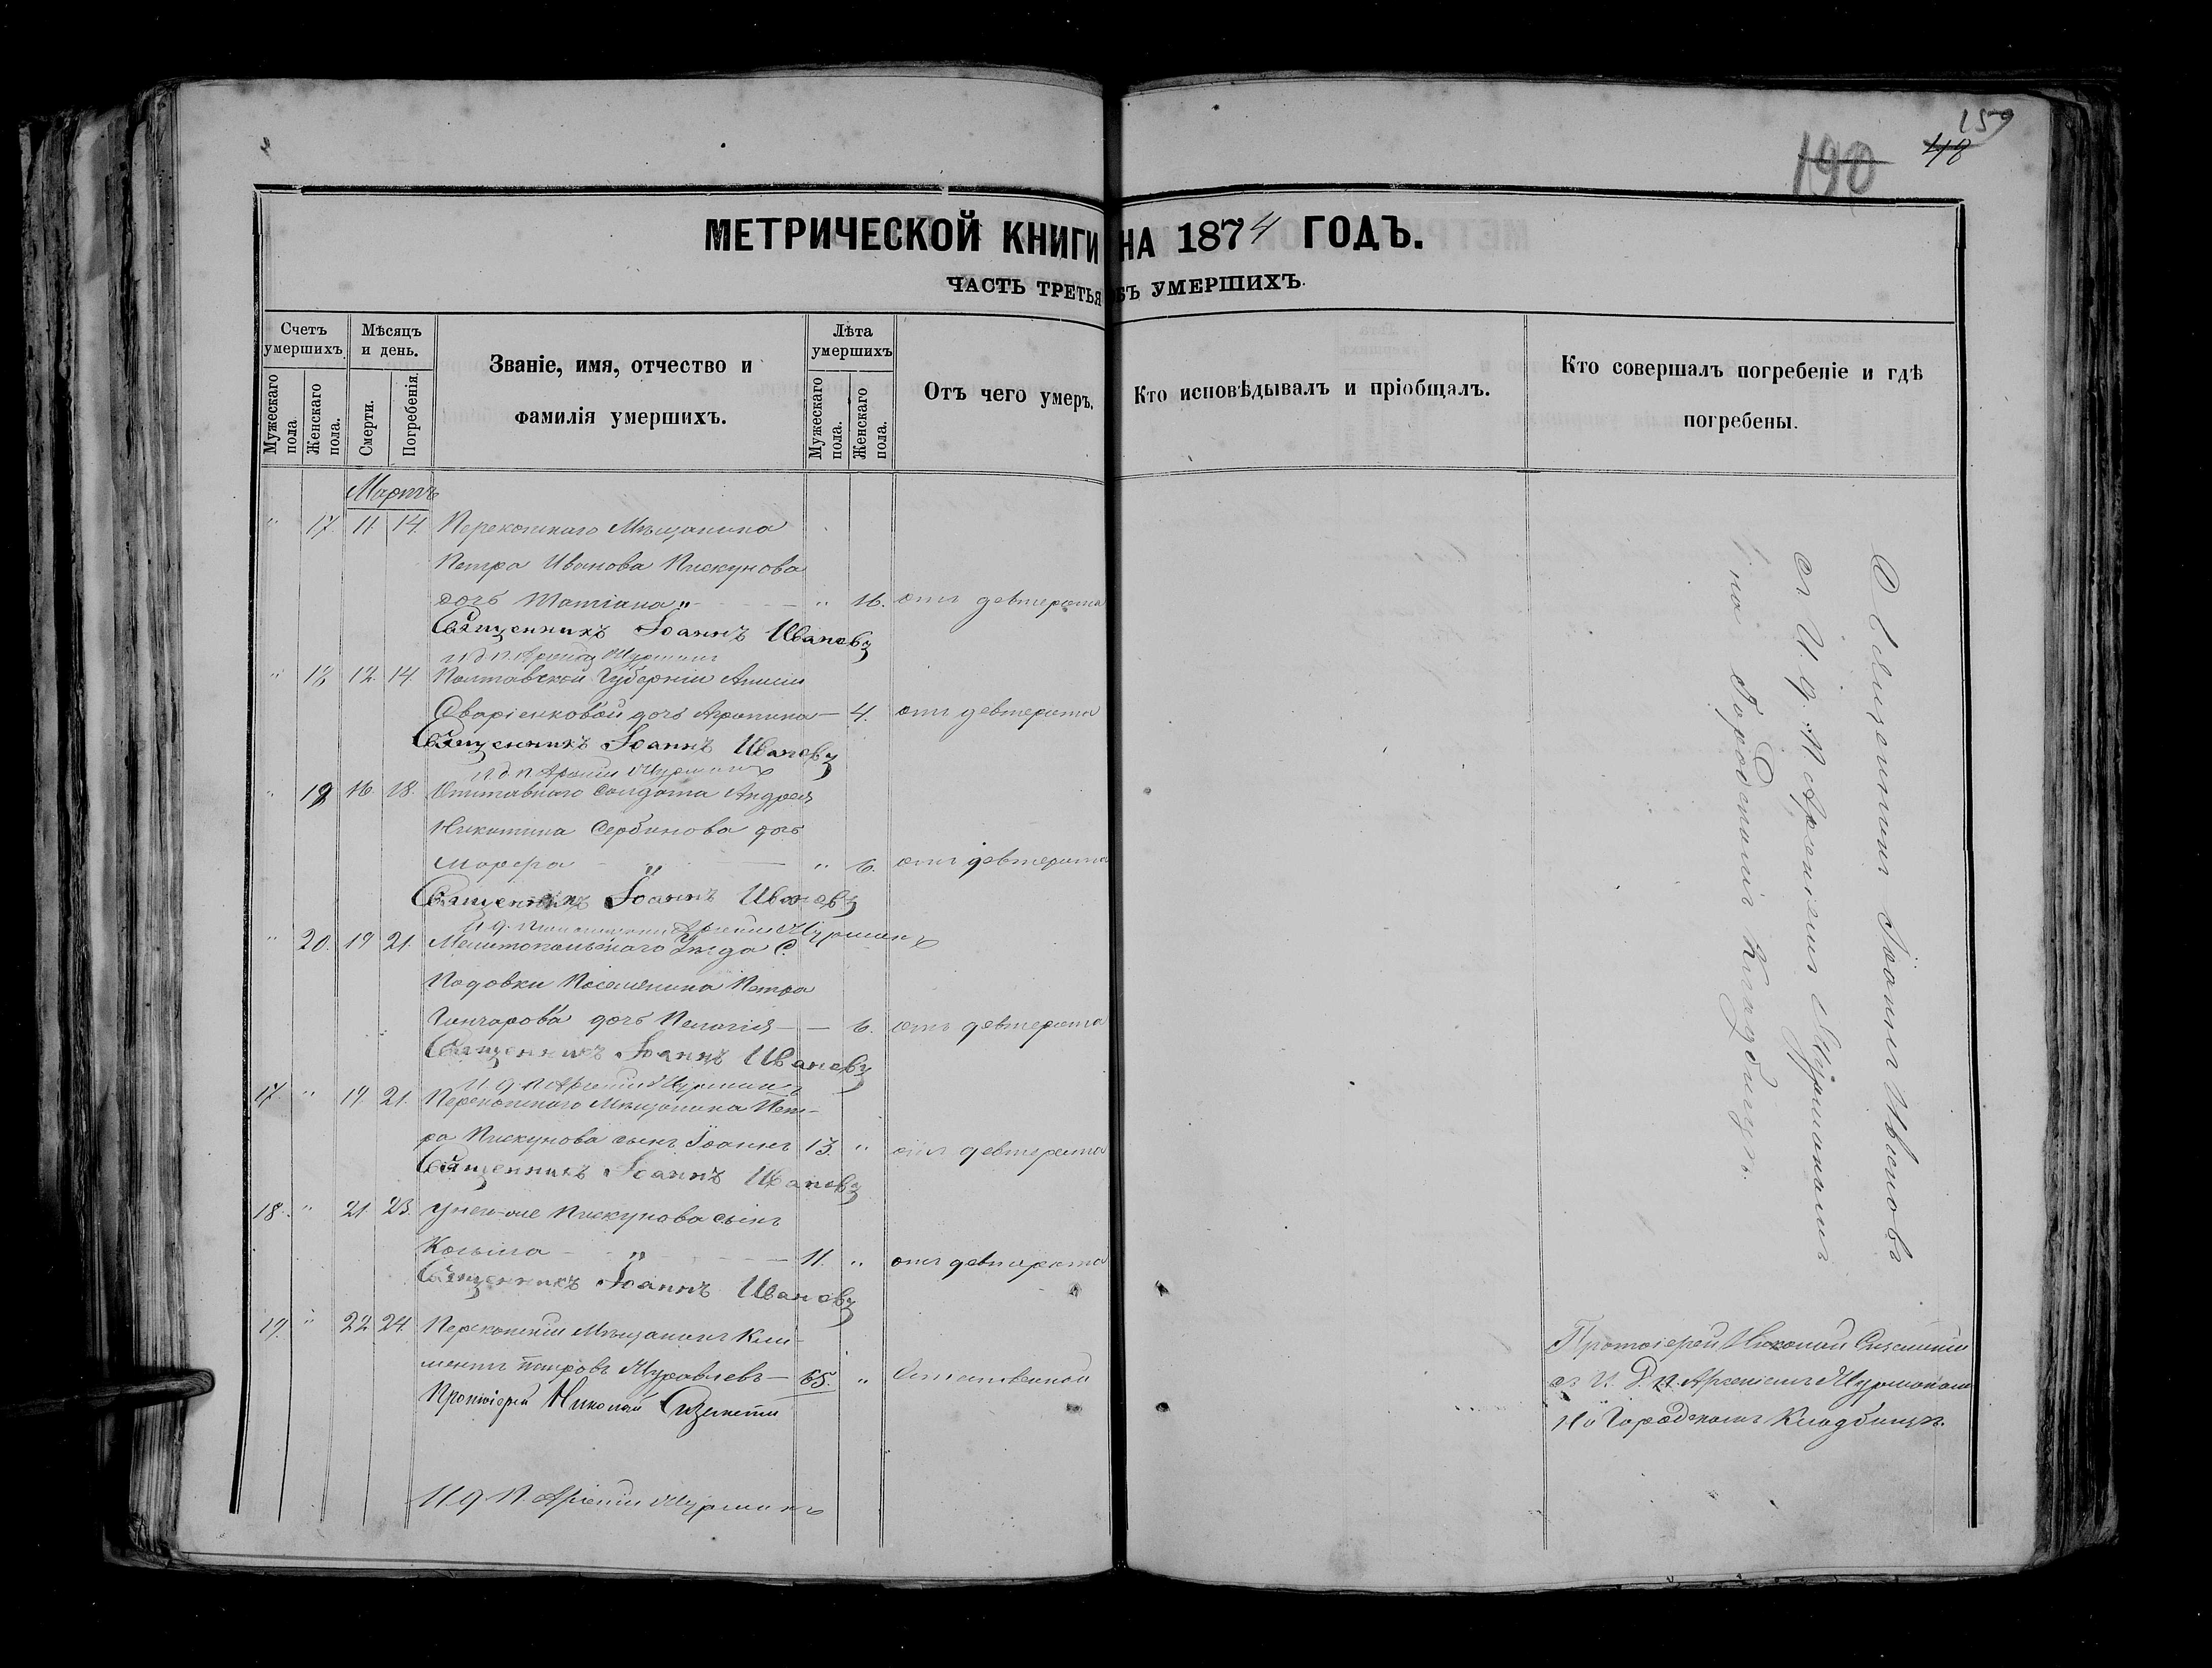 159
190
48
МЕТРИЧЕСКОЙ КНИГИ НА 1874 ГОДЪ.
ЧАСТЬ ТРЕТЬЯ БЪ УМЕРШИХЪ.
Счетъ умершихъ.
Мужескаго пола.
Женскаго пола.
Мѣсяцъ и день.
Смерти.
Погребенія.
Званіе, имя, отчество и
фамилія умершихъ.
Лѣта умершихъ
Мужескаго пола.
Женскаго пола.
Отъ чего умеръ.
Кто исповѣдывалъ и пріобщалъ.
Кто совершалъ погребеніе и гдѣ
погребены.
Мартъ
" 17. 11. 14. Перекопскаго Мѣщанина
Петра Иванова Пискунова
дочь Татіана " " 16. отъ дефтерита
Священникъ Іоаннъ Ивановъ
И. д. п. Арсеній
" 18 12. 14. Полтавской Губерніи
дочь Агрипина — 4. отъ дефтерита
Священникъ Іоаннъ Ивановъ
И. д. п. Арсеній
" 19 16. 18. Солдата Андрея
Никитина Сербинова дочь
" " 6. отъ дефтерита
Священникъ Іоаннъ Ивановъ
И. д. Арсеній
" 20. 19 21. Мелитопольскаго Уѣзда С.
Поселянина Петра
Гончарова дочь Пелагія — — 6. отъ дефтерита
Священникъ Іоаннъ Ивановъ
И. д. п. Арсеній
17. " 19. 21. Перекопскаго Мѣщанина Пет-
ра Пискунова сынъ Іоаннъ 13. " отъ дефтерита
Священникъ Іоаннъ Ивановъ
18. " 21. 23. Пискунова сынъ
Косьма " 11. " отъ дефтерита
Священникъ Іоаннъ Ивановъ
19. " 22 24. Перекопскій Мѣщанинъ Кли-
ментъ Петровъ Муравлевъ — 65. "
Протоіерей Николай
И. д. п. Арсеній
Священникъ Іоаннъ Ивановъ
съ И. д. п. Арсеніемъ
на Городскомъ Кладбищѣ.
Протоіерей Николай
съ И. д. п. Арсеніемъ
на Городскомъ Кладбищѣ.